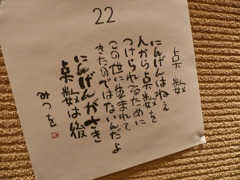 22
点数
にんげんはねぇ
人から点数を
つけられるために
この世に生まれて
きたのではないんだよ
にんげんがさき
点数は後
みつを